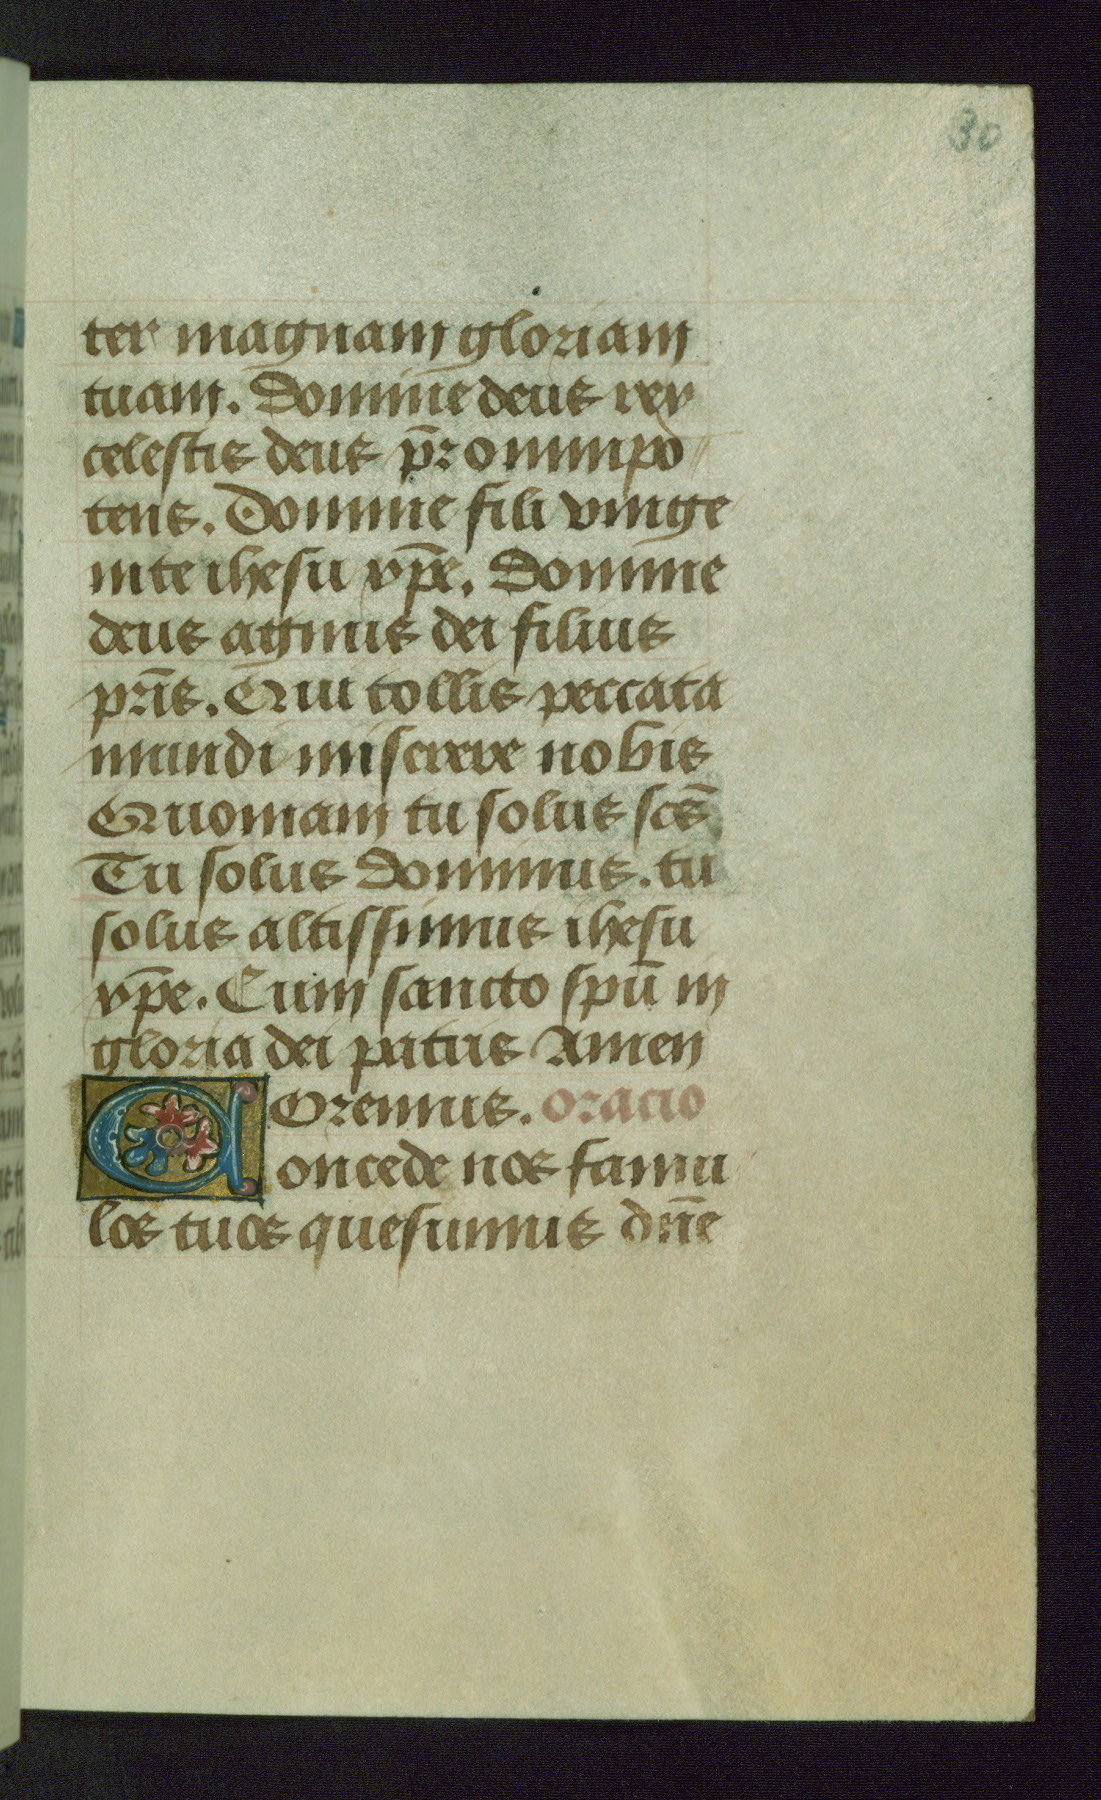 30
ter magnam gloriam
tuam. Domine deus rex
celestis deus pr̄ omnipo
tens. Domine fili vnige
nite ihesu xp̄e. Domine
deus agnus dei filius
pr̄is. Qui tollis peccata
mundi miserere nobis
Quoniam tu solus sc̄s
Tu solus dominus. tu
solus altissimus ihesu
xp̄e. Cum sancto spū in
gloria dei patris Amen
Oremus. oracio
Concede nos famu
los tuos quesumus dn̄e